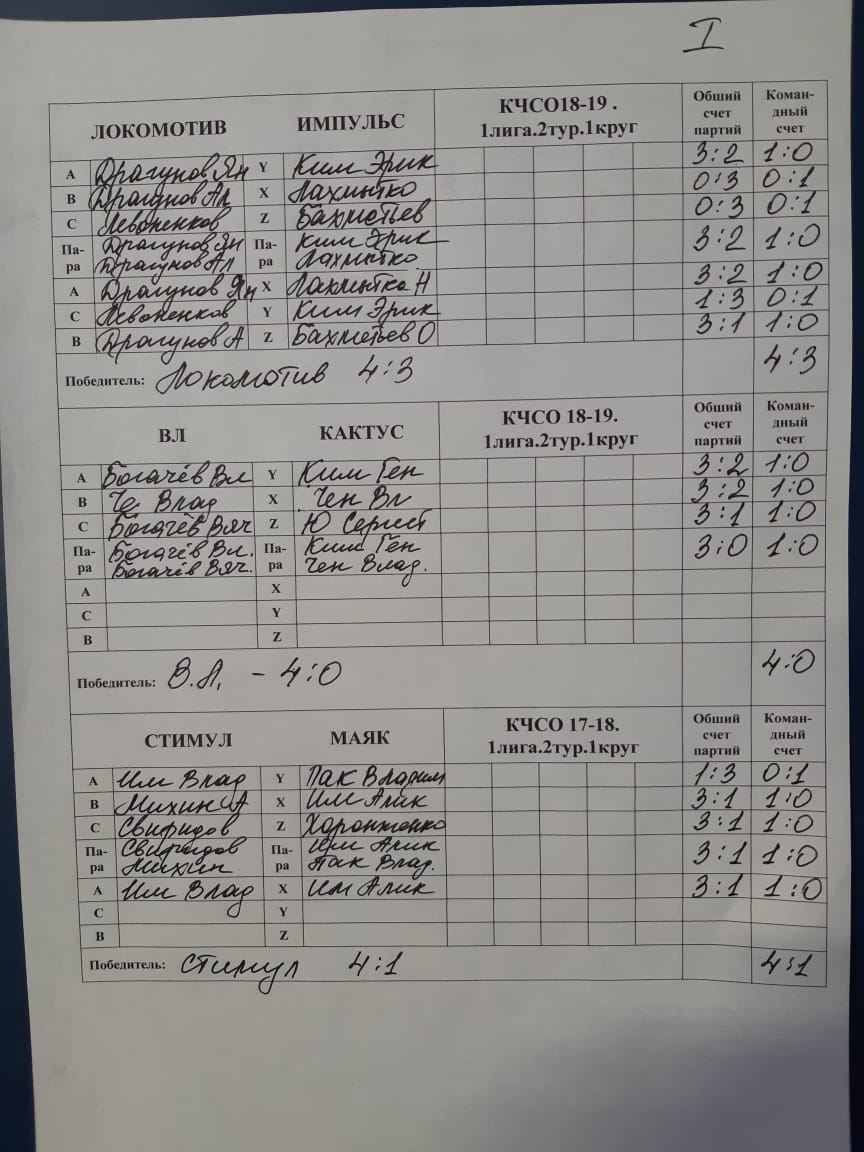 I
ЛОКОМОТИВ ИМПУЛЬС КЧСО18-19 . 1лига.2тур.1круг Обший счет партий Коман- дный счет
А Драгунов Ян Y Ким Эрик 3:2 1:0
В Драгунов Ал X Лахмитко 0:3 0:1
С Левоненков Z Бахметьев 0:3 0:1
Па- Драгунов Ян Па- Ким Эрик 3:2 1:0
ра Драгунов Ал ра Лахмитко
А Драгунов Ян X Лахмитко Н 3:2 1:0
С Левоненков Y Ким Эрик 1:3 0:1
В Драгунов А Z Бахметьев О 3:1 1:0
Победитель: Локомотив 4:3 4:3
ВЛ КАКТУС КЧСО 18-19. 1лига.2тур.1круг Обший счет партий Коман- дный счет
А Богачёв Вл Y Ким Ген 3:2 1:0
В Че Влад X Чен Вл 3:2 1:0
С Богачёв Вяч Z Ю 3:1 1:0
Па- Богачёв Вл. Па- Ким Ген 3:0 1:0
ра Богачёв Вяч. ра Чен Влад.
А X
С Y
В Z
Победитель: В.Л. - 4:0 4:0
СТИМУЛ МАЯК КЧСО 17-18. 1лига.2тур.1круг Обший счет партий Коман- дный счет
А Им Влад Y Пак Владим 1:3 0:1
В Михин А X Им Алик 3:1 1:0
С Свиридов Z Харонженко 3:1 1:0
Па- Свиридов Па- Им Алик 3:1 1:0
ра Михин ра Пак Влад.
А Им Влад X Им Алик 3:1 1:0
С Y
В Z
Победитель: Стимул 4:1 4:1